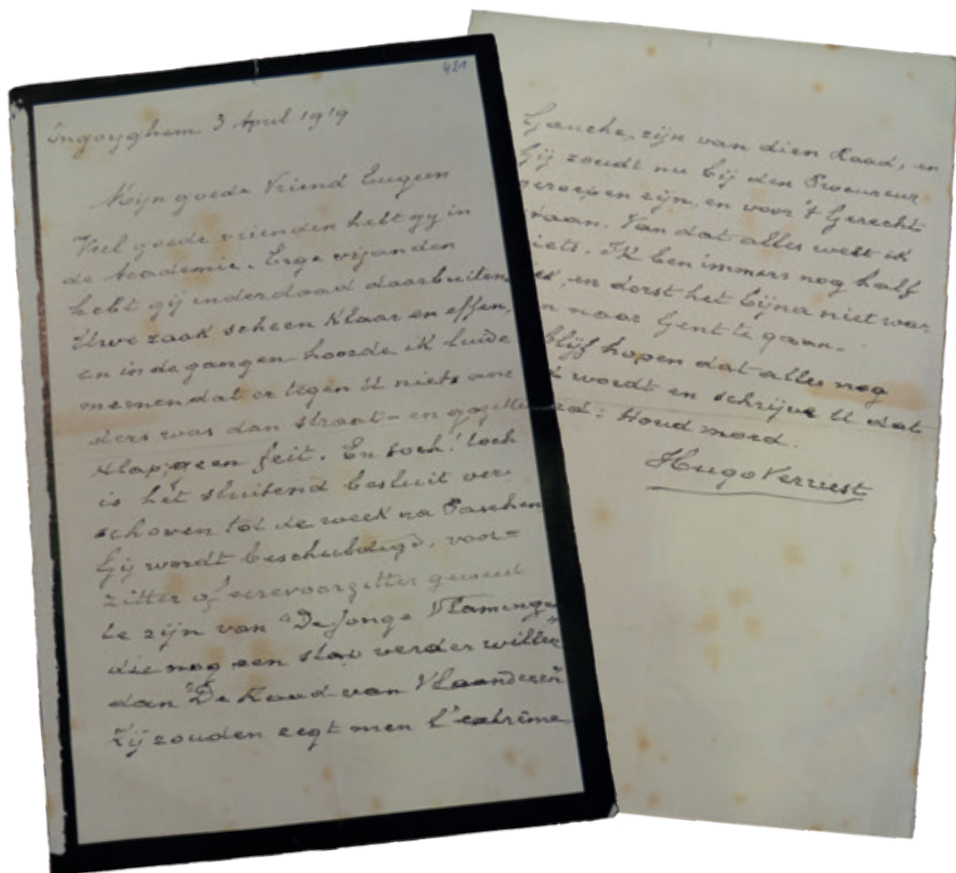 421
Ingoyghem 3 April 1919
Mijn goede Vriend Eugeen
Veel goede vrienden hebt gy in
de Academie. Erge vijanden
hebt gij inderdaad daarbuiten.
Uwe zaak scheen klaar en effen,
en in de gangen hoorde ik luide
meenen dat er tegen U niets ane
ders was dan straat- en gazette
klap; geen feit. En toch! toch
is het sluitend besluit ver-
schoven tot de week na Paschen
Gij wordt beschuldigd, voor=
zitter of eerevoorzitter geweest
te zijn van "De Jonge Vlamingen
die nog een stap verder willen
dan "De Raad van Vlaanderen"
Zij zouden zegt men l'extrême
Gauche, zijn van dien Raad, en
Gij zoudt nu bij den Procureur
geroepen zijn, en voor 't Gerecht
staan. Van dat alles weet ik
niets. Ik ben immers nog half
ziek, en dorst het bijna niet
naar Gent te gaan.
blijf hopen dat alles nog
wordt en schrijve U dat
Houd moed.
Hugo Verriest